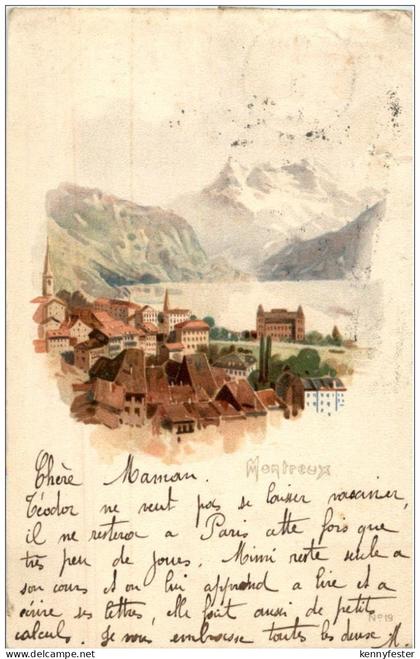 Montreux
Chère Maman.
Téodor ne veut pas se laisser vacciner,
il ne restera a Paris cette fois que
très peu de jours. Mimi reste seule a
son cours et on lui apprend a lire et a
écrire ses lettres, elle fait aussi de petits
No 19
calculs. Je vous embrasse toutes les deux M.
© www.delcampe.net
kennyfester